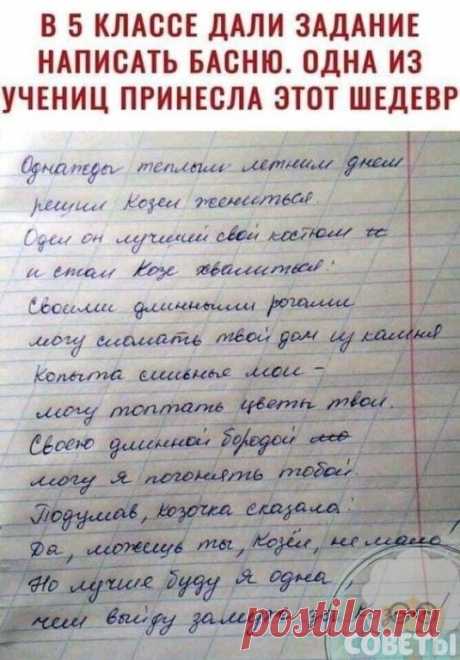 В 5 КЛАССЕ ДАЛИ ЗАДАНИЕ
НАПИСАТЬ БАСНЮ. ОДНА ИЗ
УЧЕНИЦ ПРИНЕСЛА ЭТОТ ШЕДЕВР
Однажды теплым летним днем
решил Козел жениться.
Одел он лучший свой костюм
и стал Козе хвалиться:
Своими длинными рогами
могу сломать твой дом из камня
Копыта сильные мои –
могу топтать цветы твои.
Своею длинной бородой
могу я погонять тобой.
Подумав, козочка сказала:
Да, можешь ты, Козёл, немало!
Но лучше буду я одна,
чем выйду замуж за
СОВЕТЫ
postila.ru